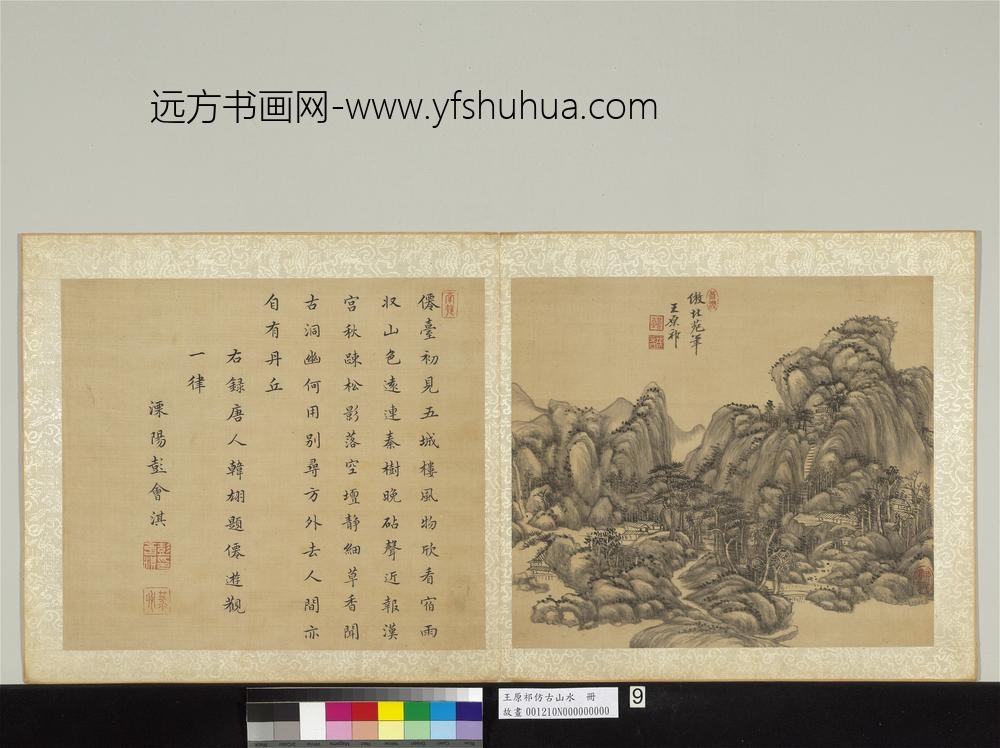 远方书画网-www.yfshuhua.com
倣北苑筆
王原祁
僊臺初見五城樓風物欣看宿雨
収山色遠連秦樹晚砧聲近報漢
宮秋踈松影落空壇靜細草香閒
古洞幽何用別尋方外去人間亦
自有丹丘
右錄唐人韓翃題僊遊觀
一律
溧陽彭會淇
王原祁仿古山水 冊
故畫001210N000000000
9